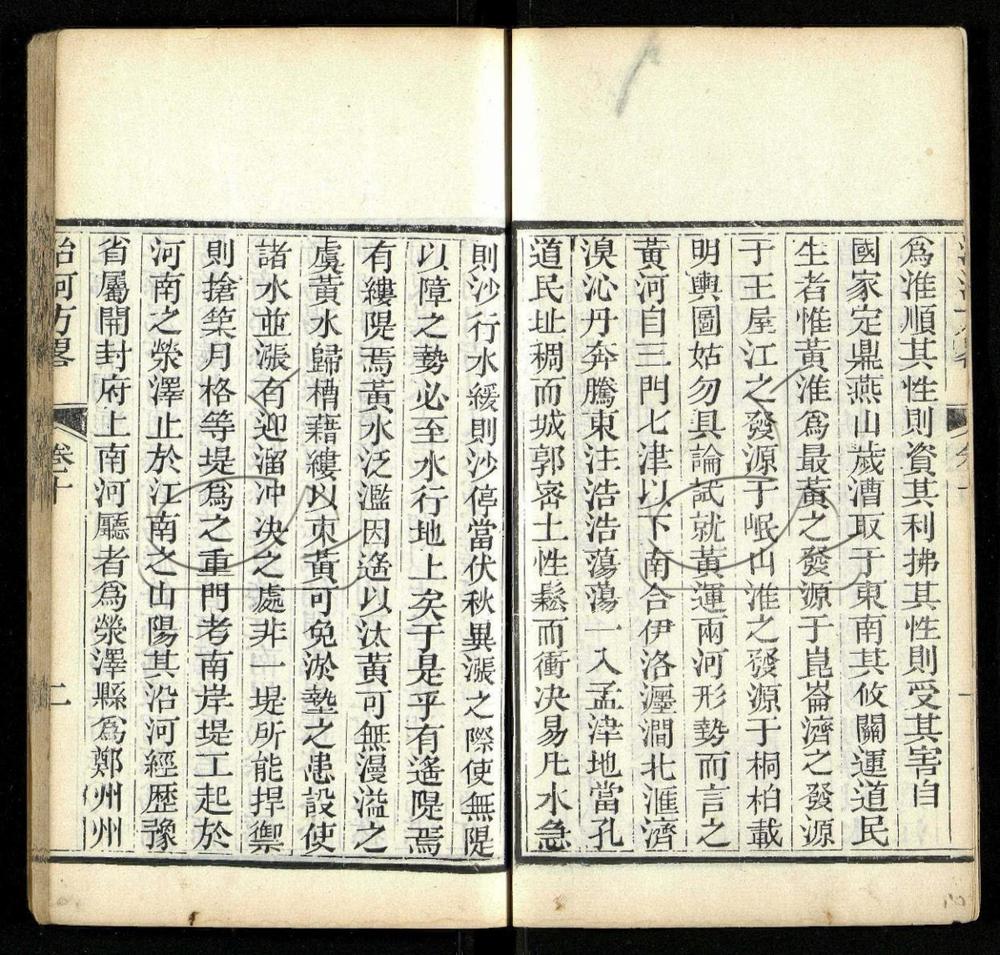 為淮順其性則資其利拂其性則受其害自
國家定鼎燕山歲漕取于東南其攸關運道民
生者惟黃淮為最黃之發源于崑崙濟之發源
于王屋江之發源于岷山淮之發源于桐柏載
明輿圖姑勿具論試就黃運兩河形勢而言之
黃河自三門七津以下南合伊洛瀍澗北滙濟
湨沁丹奔騰東注浩浩蕩蕩一入孟津地當孔
道民址稠而城郭宻土性鬆而衝决易凡水急
則沙行水緩則沙停當伏秋異漲之際使無隄
以障之勢必至水行地上矣于是乎有遙隄焉
有縷隄焉黃水泛濫因遙以汰黃可無漫溢之
虞黃水歸槽藉縷以束黃可免淤墊之患設使
諸水並漲有迎溜冲决之處非一堤所能捍禦
則搶築月格等堤為之重門考南岸堤工起於
河南之滎澤止於江南之山陽其沿河經歷豫
省屬開封府上南河廳者為滎澤縣為鄭州州
治河方畧
卷十
二